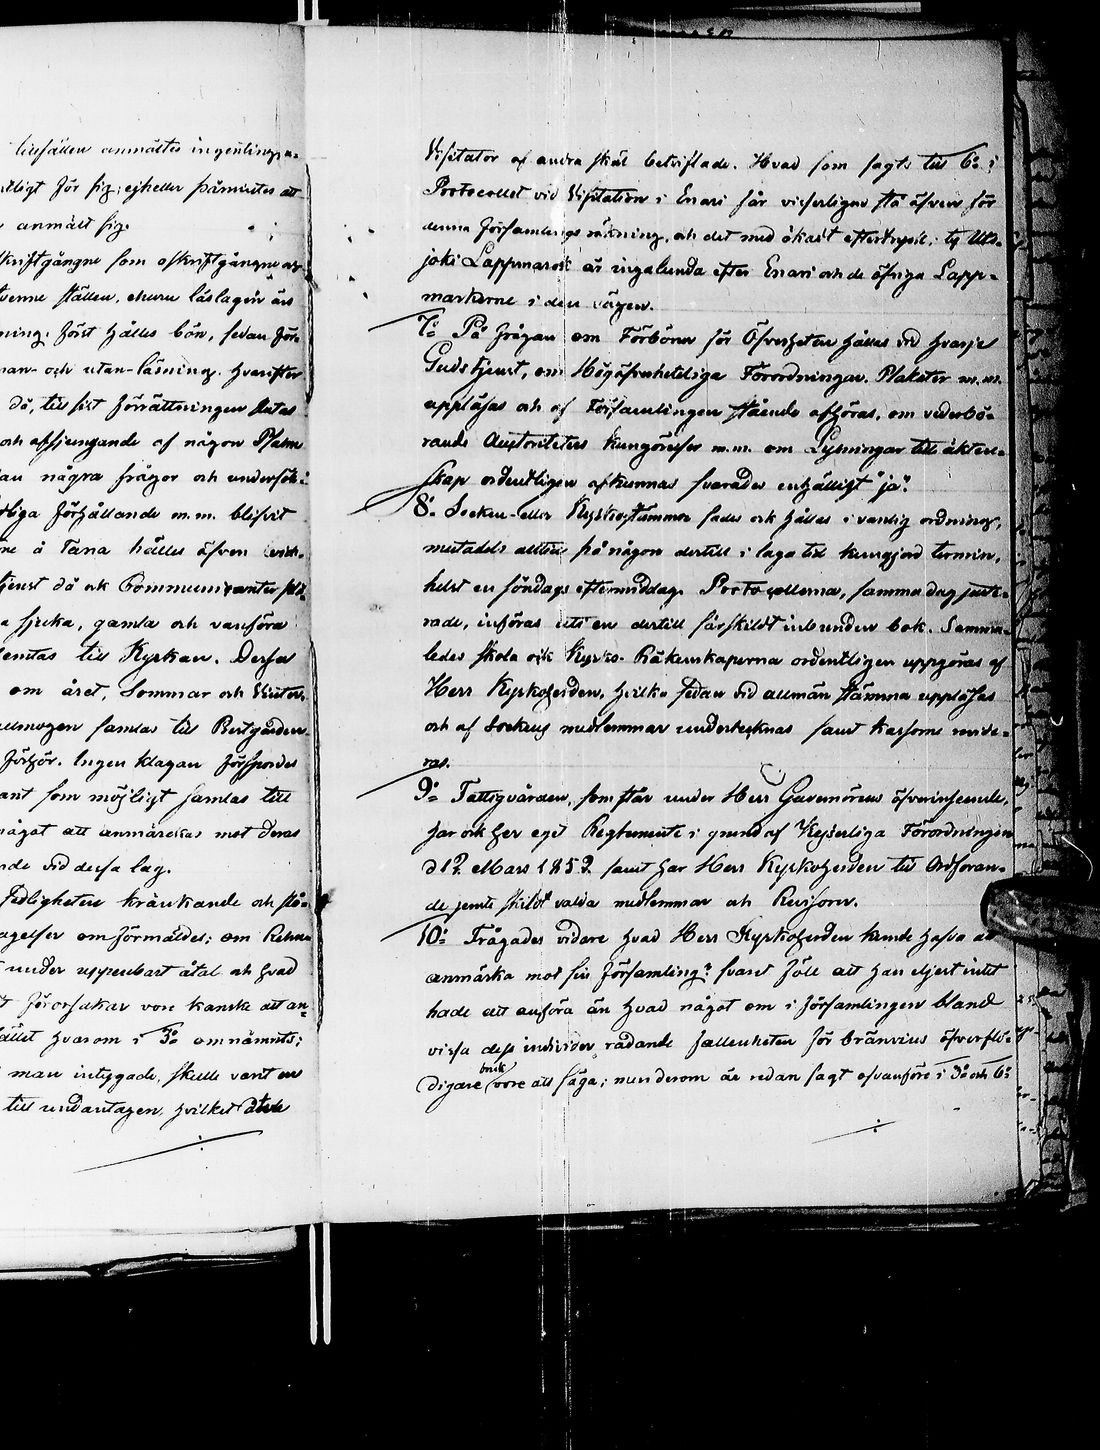 tillfällen anmältes ingenting
för sig; ejheller påmintes att
anmält sig.
skriftgångne som oskriftgångne
ställen, ehuru läslagen äro
först hålles bön, sedan för-
man- och utan-läsning. hvarefter
då, till sist förrättningen slutas
och afsjungande af någon Psalm
några frågor och undersök-
förhållande m.m. blifvit
å Tana hålles äfven
då ock Communicanter
sjuka, gamla och vanföra
till Kyrkan. Dessa
om året, Sommar och Vinter,
samlas till Prestgården
förhör. Ingen klagan förspordes
som möjligt samlas till
något att anmärckas mot deras
vid dessa lag.
Sedligheten kränkande och
omförmäldes; om
under uppenbart åtal och hvad
förorsakar vore kanske att an-
hvarom i 5o omnämnts;
man intygade, skulle varit en
till undantagen, hvilket
Visitator af andra skäl betviflade. Hvad som sagts till 6o i
Protocollet vid Visitation i Enari får visserligen stå äfven för
denna församlings räkning, och det med ökadt eftertryck; ty Uts-
joki Lappmarck är ingalunda efter Enari och de öfriga Lapp-
markerne i den vägen.
7o På frågan om Förböner för Öfverheten hålles vid hvarje
Gudstjenst, om Högöfverhetliga Förordningar, Plakater m.m.
uppläsas och af Församlingen stående afhöras, om vederbö-
rande Auctoriteters kungörelser m.m. om Lysningar till äkten-
skap ordentligen afkunnas svarades enhälligt "ja".
8o Socken- eller Kyrkostämmor lades och hålles i vanlig ordning,
mestadels alltid på någon dertill i laga tid kungjord termin,
helst en söndags eftermiddag. Protocollerna, samma dag juste-
rade, införas uti en dertill särskildt inbunden bok. Samma-
ledes skola ock Kyrko-Räkenskaperna ordentligen uppgöras af
Herr Kyrkoherden, hvilka sedan vid allmän stämma uppläsas
och af Sockne medlemmar undertecknas samt kassorne revide-
ras.
9o Fattigvården, som står under Herr Guvernörens öfverinseende,
har ock här eget Reglemente i grund af Kejserliga Förordningen
d 17 Mars 1852 samt har Herr Kyrkoherden till Ordföran-
de jemte skildt valda medlemmar och Revisorer.
10o Frågades vidare hvad Herr Kyrkoherden kunde hafva att
anmärka mot sin församling? svaret föll att han eljest intet
hade att anföra än hvad något om i församlingen bland
vissa dess individer rådande fallenheten för bränvins öfverflö-
digare bruk vore att säga; men derom är redan sagt ofvanföre i 5o och 6o